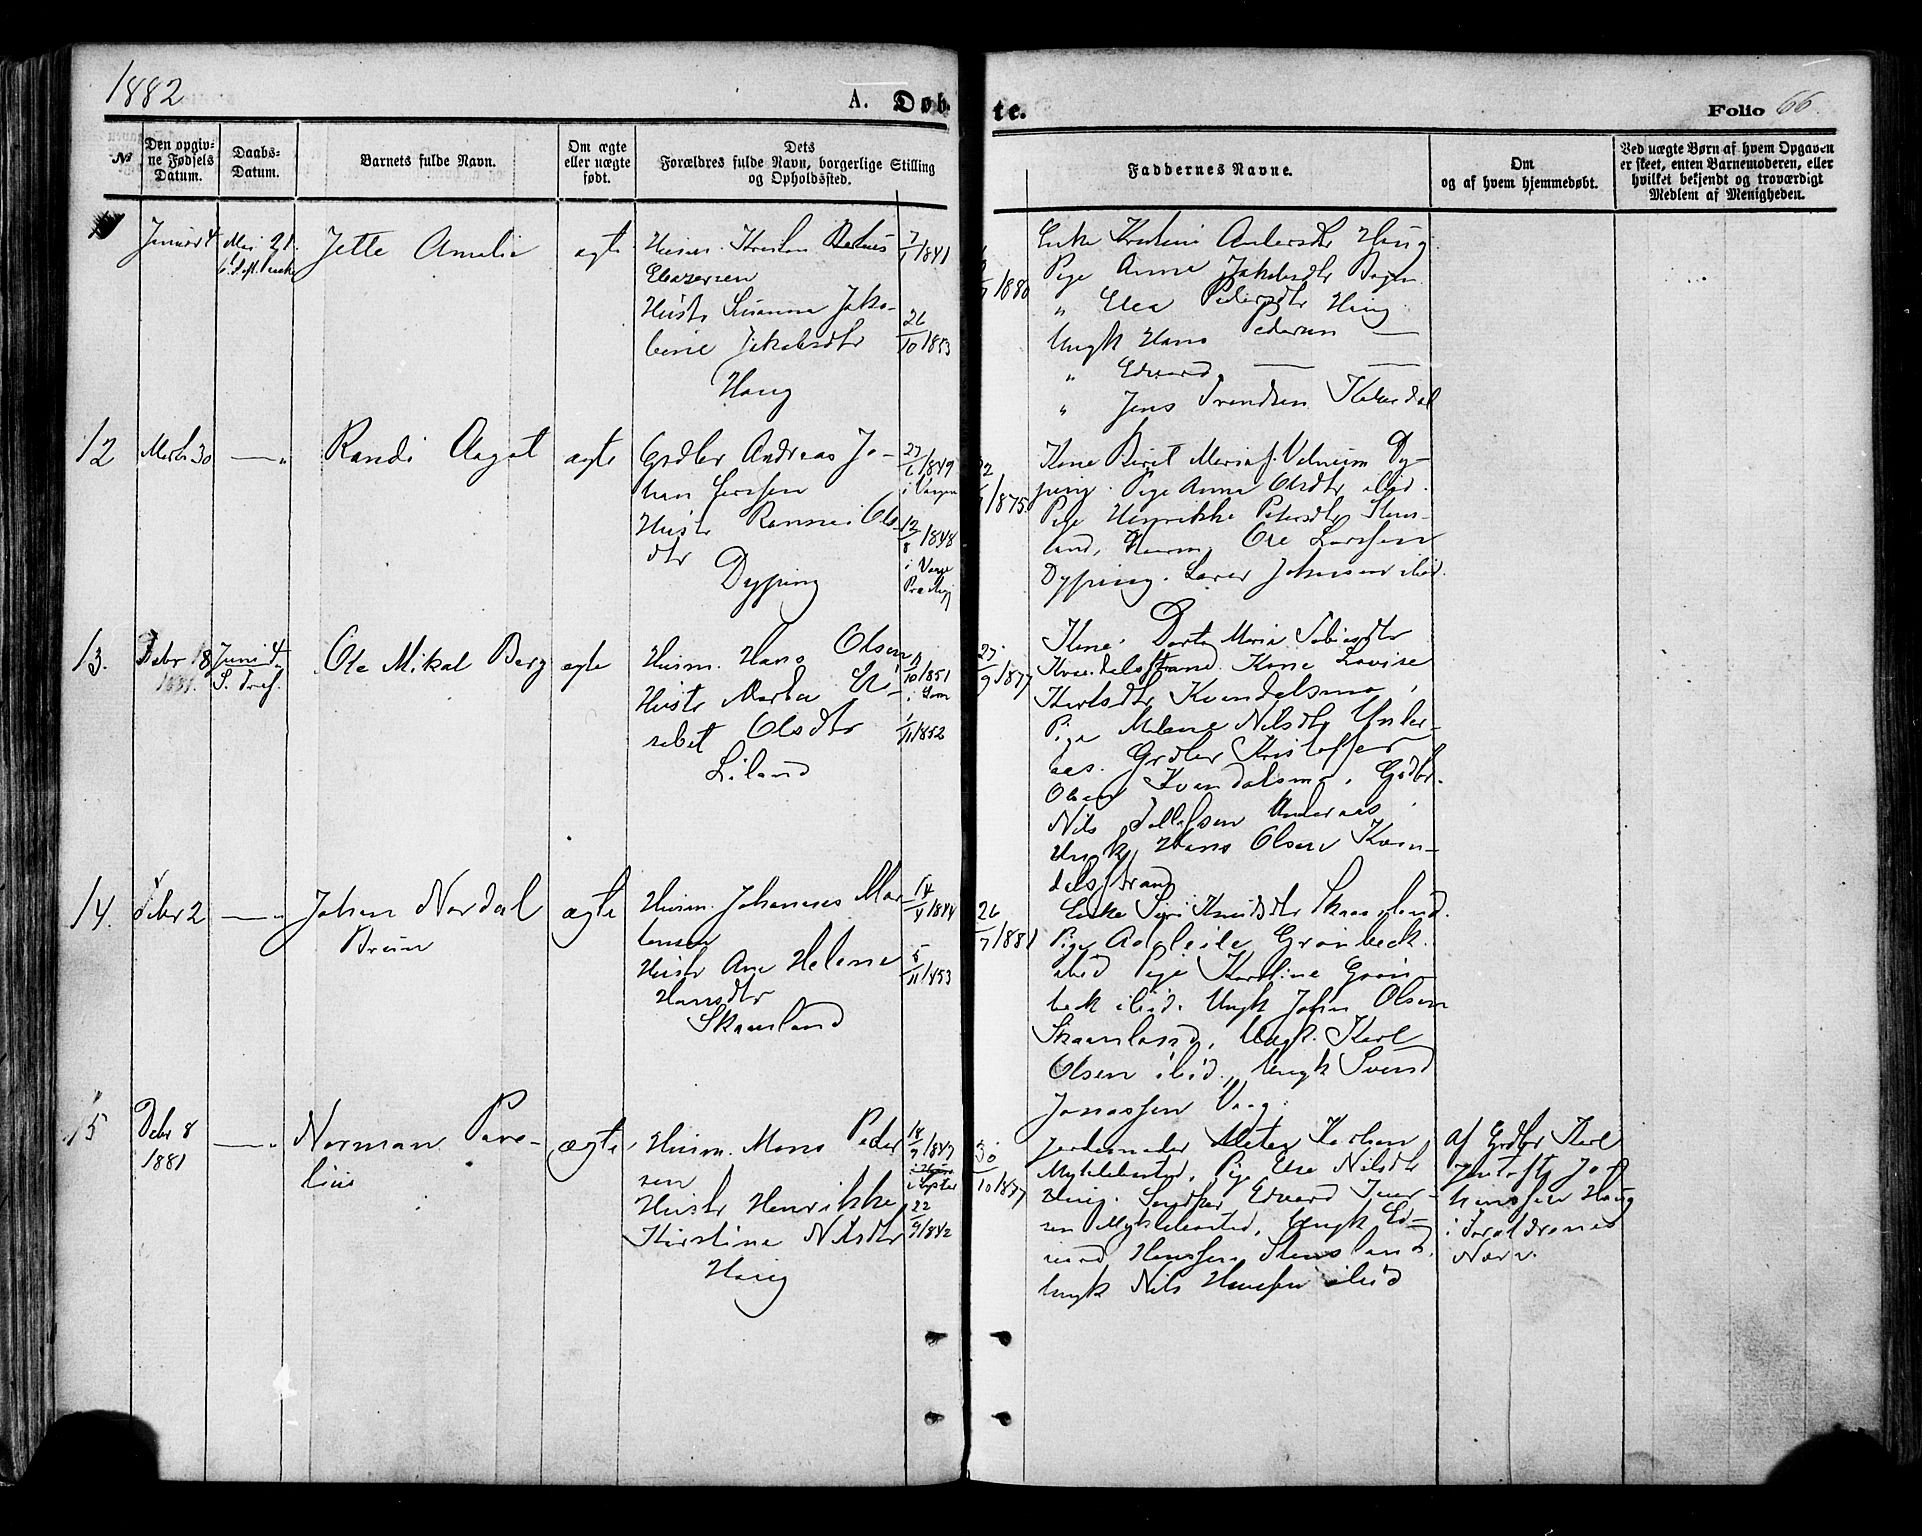 1882
A. Døb
te.
Folio 66
No
Den opgiv-
ne Fødsels
Datum.
Daabs-
Datum.
Barnets fulde Navn.
Om ægte
eller uægte
født.
Dets
Forældres fulde Navn, borgerlige Stilling
og Opholdssted.
Faddernes Navne.
Om
og af hvem hjemmedøbt.
Ved uægte Børn af hvem Opgaven
er skeet, enten Barnemoderen, eller
hvilket bekjendt og troværdigt
Medlem af Menigheden.
Januar 4
Mai 21
Jette Amalia
ægte
Husm. Kristen
Eleasersen
Hustr Susanna Jako-
bine Jakobsdtr
Haug
7/1 1841
26/10 1853
1880
Enke Kristine Andersdtr Haug
Pige Anna Jakobsdtr
" Elea Pedersdtr Haug
Ungk Hans Pedersen —
" Edvard — —
" Jens Svendsen
12
Marts 30
— "
Randi Aagot
ægte
Grdbr Andreas Jo-
han Larssen
Hustr Rannei Ols-
dtr
Dyping
27/6 1849
12/8 1848
1875
Kone Berit Maria f.
Dy-
ping. Pige Anna Olsdtr ibid.
Pige Henrikke Petersdtr Stens-
land, Husm. Ole Larssen
Dyping. Johnsen ibid.
13.
Debr 18
1881.
Juni 4
S. Tref.
Ole Mikal Berg
ægte
Husm. Hans Olsen
Hustr Marta El-
sebet Olsdtr
Liland
/10 1851
1/11 1852
27/9 1877
Kone Dorte Maria Tobiasdtr
Kvandalstrand. Kone Lovise
Karlsdtr Kvandalsmo,
Pige Milene Nilsdtr Under-
aas. Grdbr Kristoffer
Olsen Kvandalsmo, Grdbr.
Nils Tollefsen Underaas,
Ungk Hans Olsen Kvan-
dalsstrand
14.
Febr 2
— "
Johan Nordal
Bruun
ægte
Husm. Johannes Mor-
tensen
Hustr Ane Helene
Hansdtr
Skaanland
14/4 1844
5/11 1853
26/7 1881
Enke Siri Knudsdtr Skaanland.
Pige Adeleile Grønbeck
ibid Pige Karoline Grøn-
beck ibid. Ungk Johan Olsen
Skaanland, Ungk. Karl
Olsen ibid., Ungk Svend
Jonassen Vaag.
15
Debr 8
1881
— "
Norman Pare-
lius
ægte
Husm. Mons Peder
sen
Hustr Henrikke
Kirstine Nilsdtr
Haug
18/9 1847
22/9 1842
30/10 1877
Jordemoder Karlsen
Myklebostad, Pige Else Nilsdtr
Haug. Edvard Iver-
sen Myklebostad, Ungk Ed-
vard Hanssen Stensland,
Ungk Nils Hanssen ibid
Af Grdbr Karl
Jentoft Jo-
hanssen Haug
i Foreldrenes
Nærv.